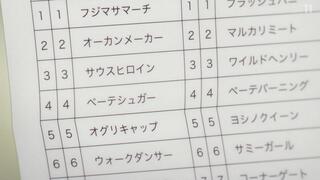 1 1 フジマサマーチ
2 2 オーカンメーカー
3 3 サウスヒロイン
4 4 ベーテシュガー
5 5 オグリキャップ
6 6 ウォークダンサー
1 1
2 2 マルカリミート
3 3 ワイルドヘンリー
4 4 ベーテバーニング
5 5 ヨシノクイーン
6 6 サミーガール
7 7 コーナーゲート